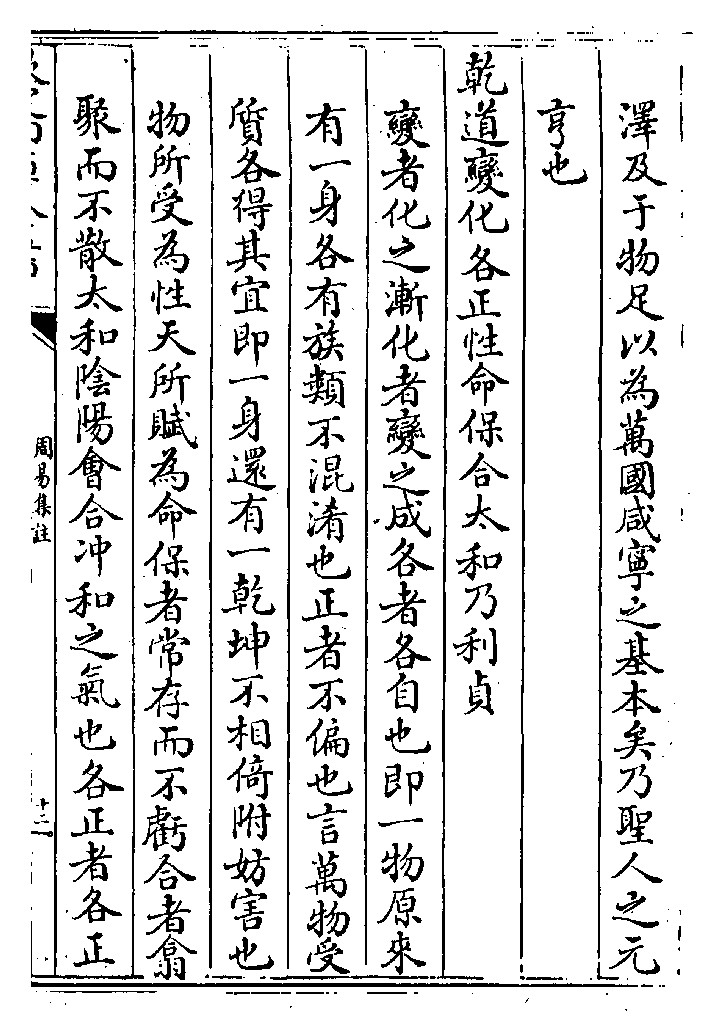 澤及于物足以為萬國咸寧之基本矣乃聖人之元
亨也
乾道變化各正性命保合太和乃利貞
變者化之漸化者變之成各者各自也即一物原來
有一身各有族類不混淆也正者不偏也言萬物受
質各得其宜即一身還有一乾坤不相倚附妨害也
物所受為性天所賦為命保者常存而不虧合者翕
聚而不散太和陰陽會合冲和之氣也各正者各正
周易集註
十二